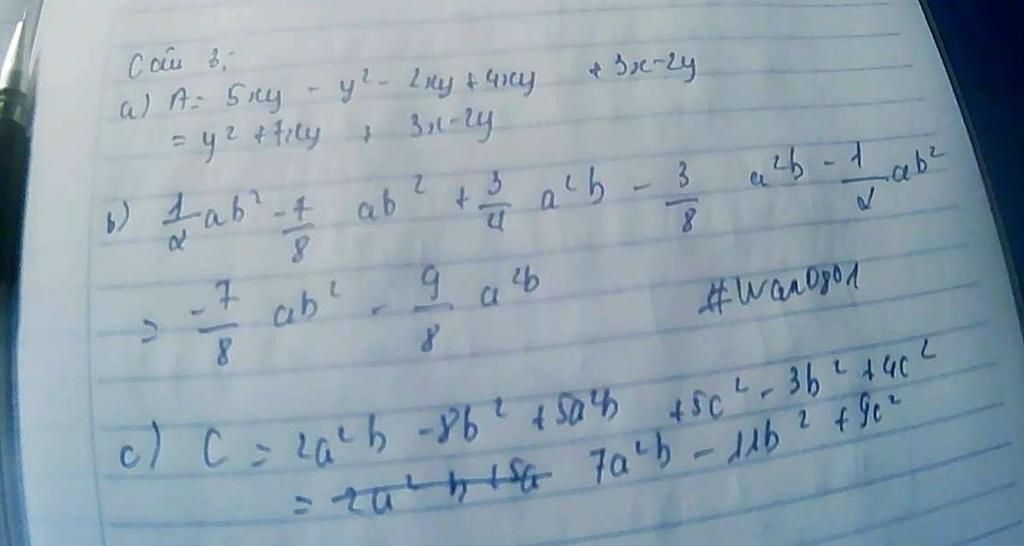 Câu 3:
a) A = 5xy - y² - 2xy + 4xy + 3x - 2y
= y² + 7xy + 3x - 2y
b) 1/2 ab² - 7/8 ab² + 3/4 a²b - 3/8 a²b - 1/2 ab²
= -7/8 ab² - 9/8 a²b
#Wan0801
c) C = 2a²b - 8b² + 5a²b + 5c² - 3b² + 4c²
= 7a²b - 11b² + 9c²